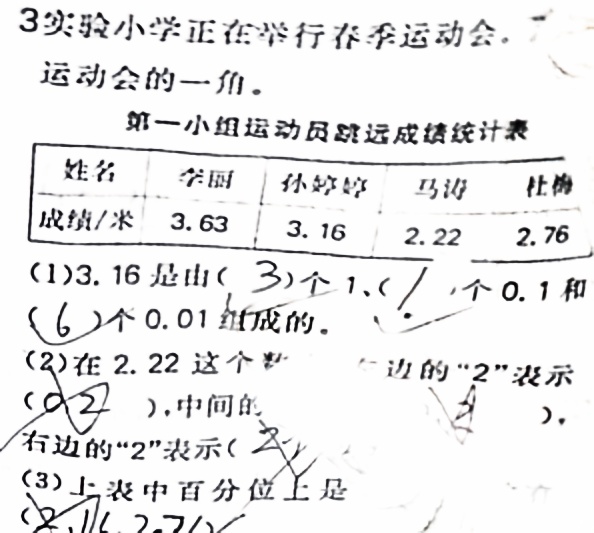 3实验小学正在举行春季运动会。
运动会的一角。
第一小组运动员跳远成绩统计表
姓名 李丽 孙婷婷 马涛 杜梅
成绩/米 3.63 3.16 2.22 2.76
(1)3.16是由( 3 )个1、( 1 个0.1和
( 6 )个0.01组成的。
(2)在2.22这个数 边的“2”表示
( ),中间的 )。
右边的“2”表示( 2
(3)上表中百分位上是